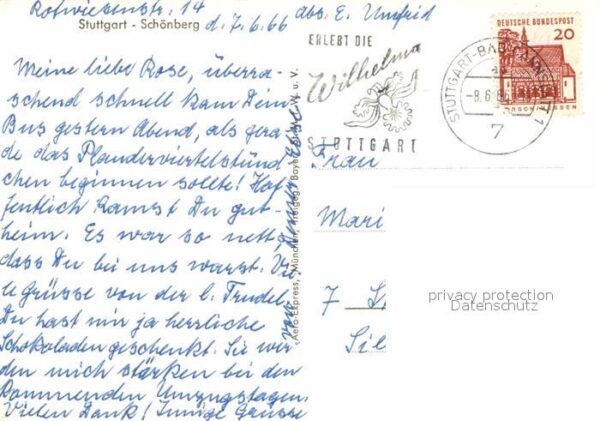 Rotwiesenstr. 14
Stuttgart - Schönberg
d. 7.6.66
abs. E. Umfrid
Meine liebe Rose, überra-
schend schnell kam Dein
Bus gestern Abend, als gera-
de das Plauderviertelstünd-
chen beginnen sollte! Hof-
fentlich kamst Du gut
heim. Es war so nett,
dass Du bei uns warst. Vie-
le Grüsse von der l. Trudel.
Du hast mir ja herrliche
Schokoladen geschenkt. Sie wer-
den mich stärken bei den
kommenden Umzugstagen.
Vielen Dank! Innige Grüsse
von Deiner
"Aero-Express, München,
ERLEBT DIE
Wilhelma
STUTTGART
STUTTGART-BAD CANNSTATT 1
-8.6.66
7
DEUTSCHE BUNDESPOST
20
Frau
Mari
7 St
Sil
privacy protection
Datenschutz